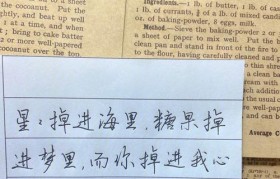 the cocoanut. Put the
ghtly, and beat up well
at a time, and when
bring to cake batter
2 or more well-papered
cocoanut over the top.
Ingredients.—1 lb. of butter, 1 lb. of
1 lb. of currants, of a lb. of mixed
oz. of baking-powder, 8 eggs, milk.
Method.—Sieve the baking-powder 2 or
a sheet of paper to mix well. Put the
clean pan and stand in front of the fire to
to the floor, having carefully cleaned and
Average C
星：掉进海里，糖果掉
进梦里，而你掉进我心